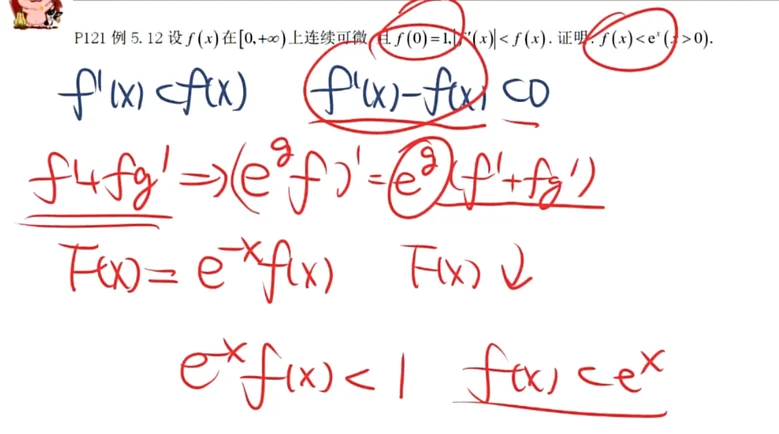 P121 例 5.12 设 f(x) 在 [0,+∞) 上连续可微, 且 f(0)=1, |f'(x)|<f(x). 证明: f(x)<eˣ(x>0).
f'(x)<f(x) f'(x)-f(x)<0
f'+fg' ⇒ (e^g f)' = e^g (f'+fg')
F(x) = e^{-x}f(x) F(x) ↓
e^{-x}f(x)<1 f(x)<e^x